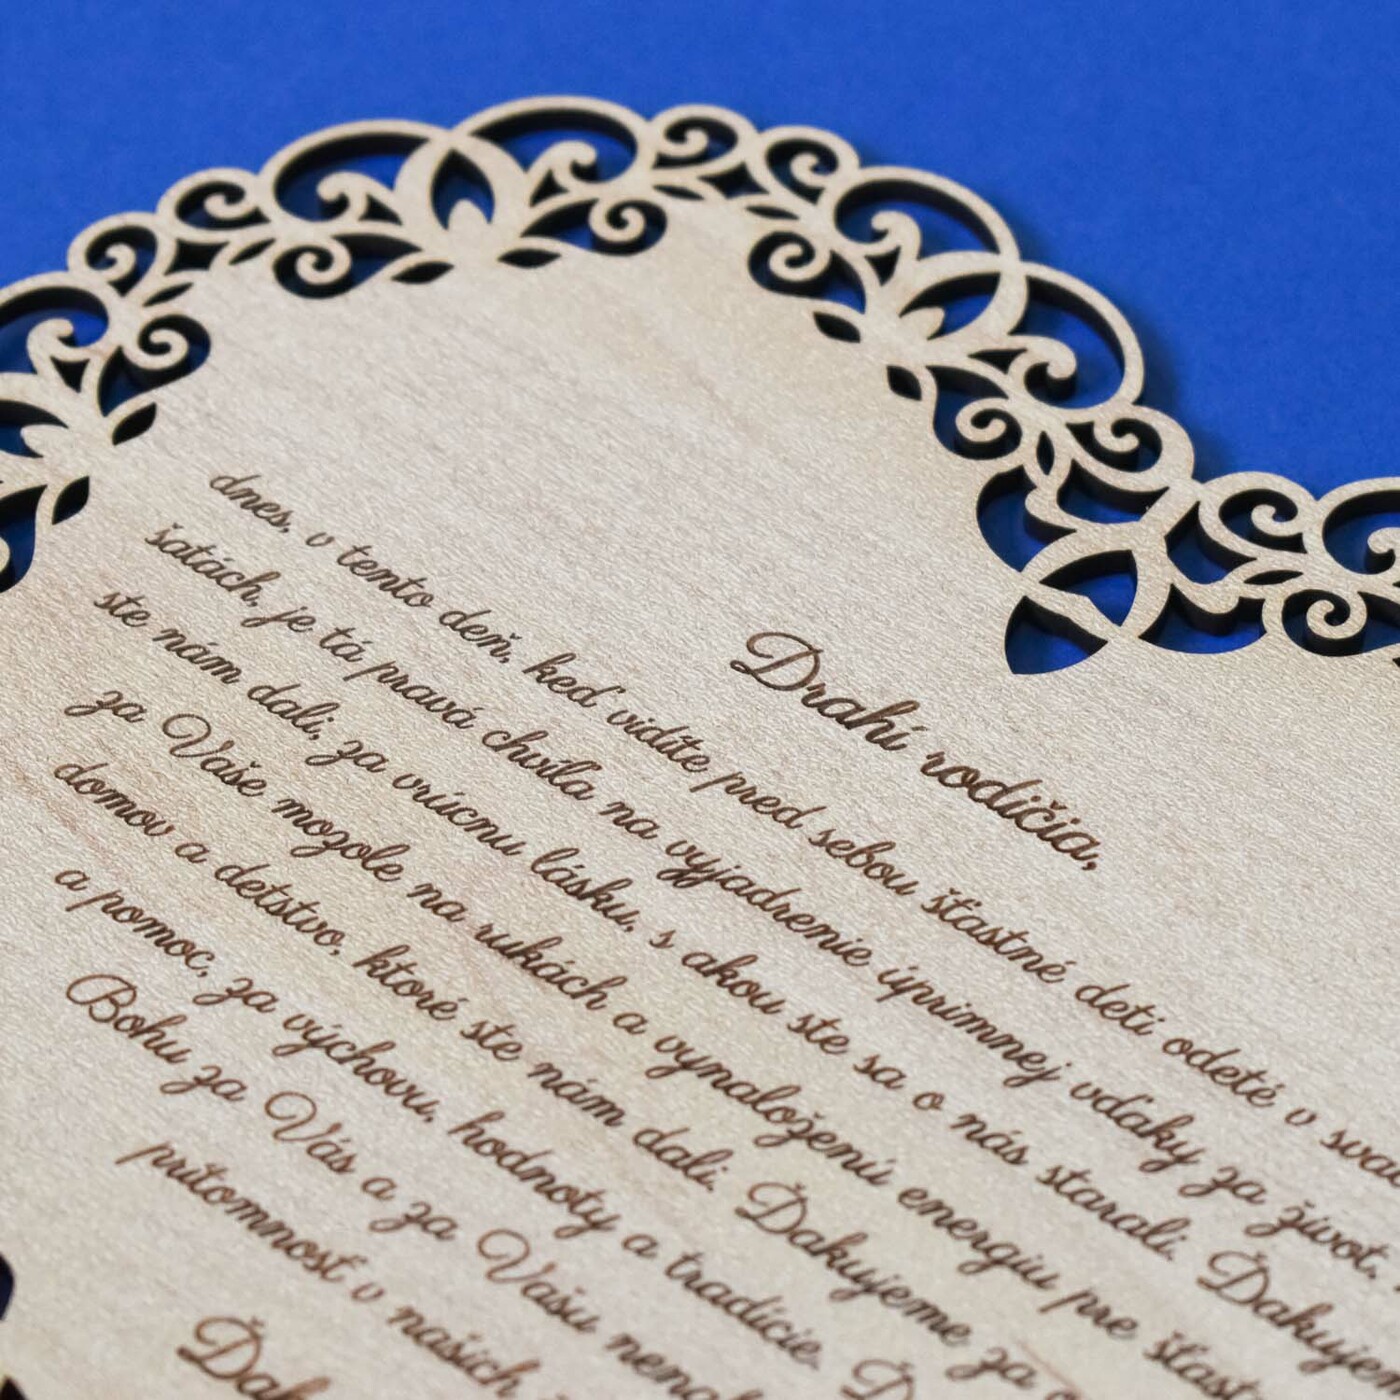 Drahí rodičia,
dnes, v tento deň, keď vidíte pred sebou šťastné deti odeté v
šatách, je tá pravá chvíľa na vyjadrenie úprimnej vďaky za život,
ste nám dali, za vrúcnu lásku, s akou ste sa o nás starali. Ďakujem
za Vaše mozole na rukách a vynaloženú energiu pre
domov a detstvo, ktoré ste nám dali. Ďakujeme za
a pomoc, za výchovu, hodnoty a tradície.
Bohu za Vás a za Vašu
prítomnosť v našich